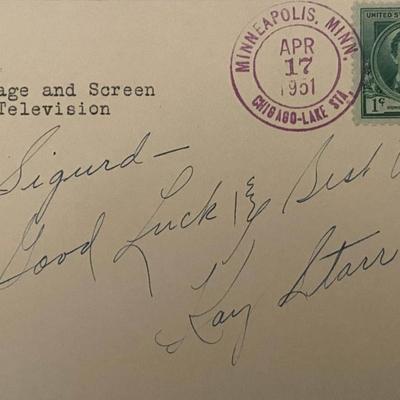 MINNEAPOLIS, MINN.
APR
17
1951
CHICAGO-LAKE STA.
UNITED STA
1¢
age and Screen
Television
Sigurd—
Good Luck & Best
Kay Starr